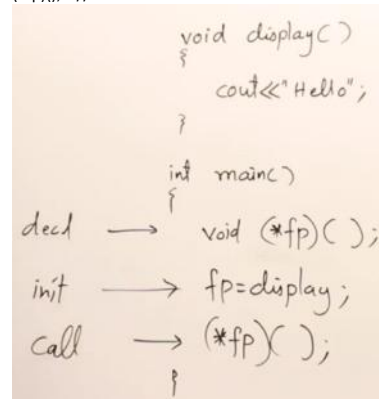 void display()
{
cout<<"Hello";
}
int main()
{
decl → void (*fp)();
init → fp=display;
call → (*fp)();
}